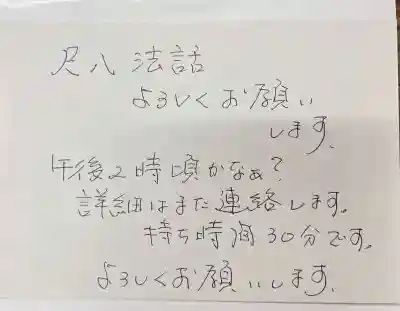 尺八 法話
よろしくお願い
します。
午後2時頃かなぁ?
詳細はまた連絡します。
持ち時間30分です。
よろしくお願いします。